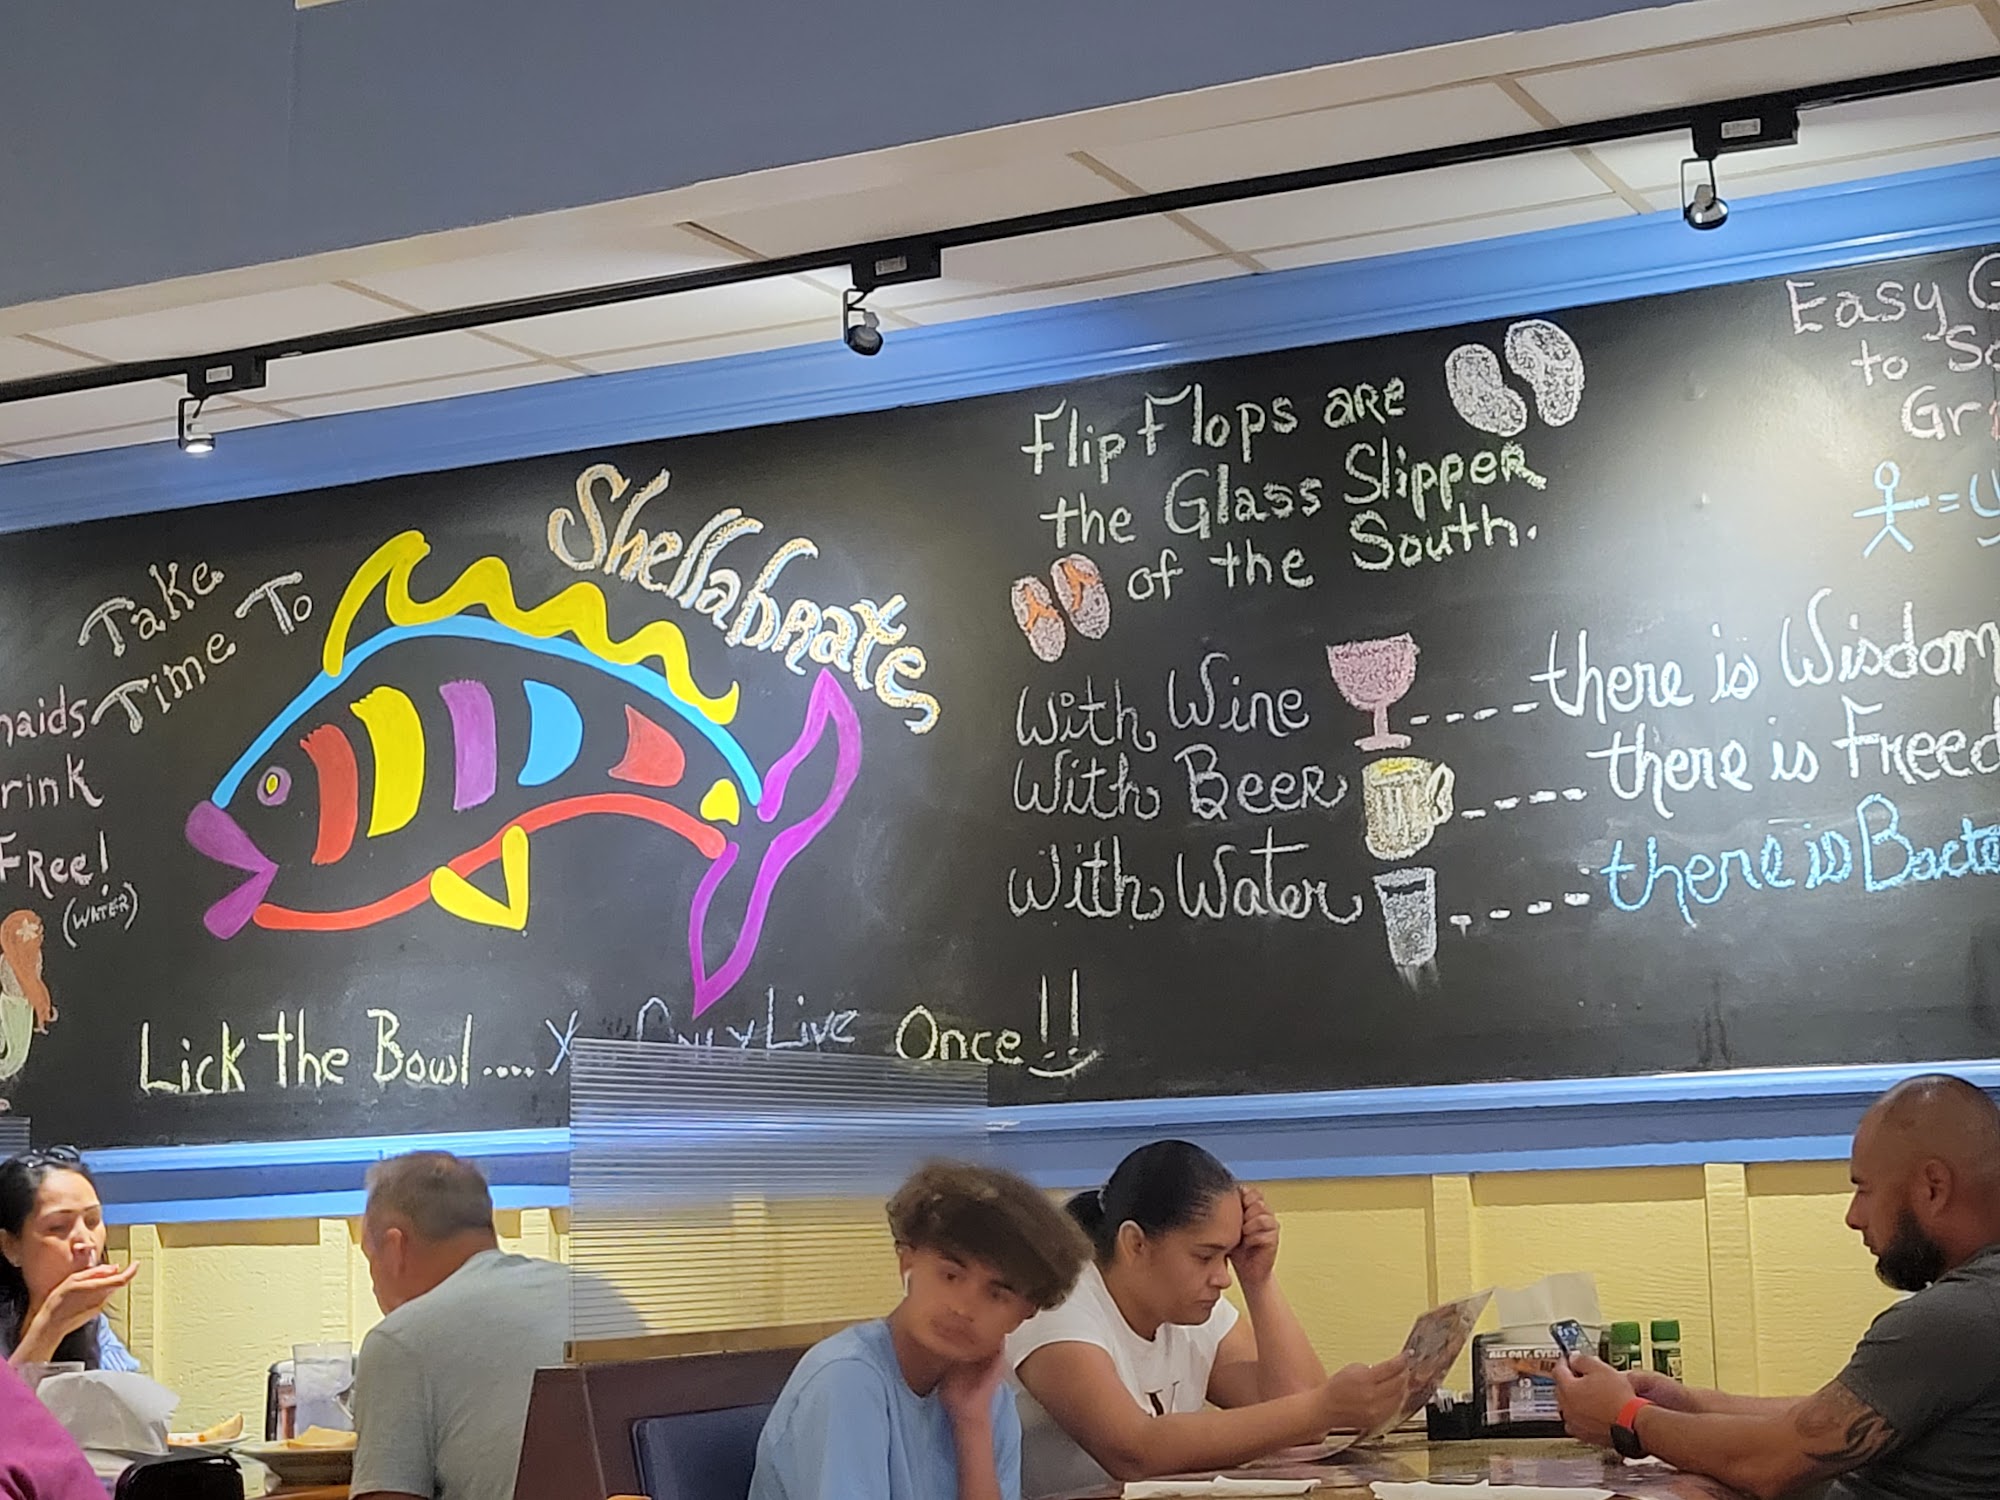 Take
Time To
Shellabrate
maids
rink
Free!
(WATER)
Lick the Bowl.... Only Live Once!!
Flip Flops are
the Glass Slipper
of the South.
With Wine ---- there is Wisdom
With Beer ---- there is Freed
With Water ---- there is Bacte
Easy G
to S
Gr
=
ALL DAY, EVER